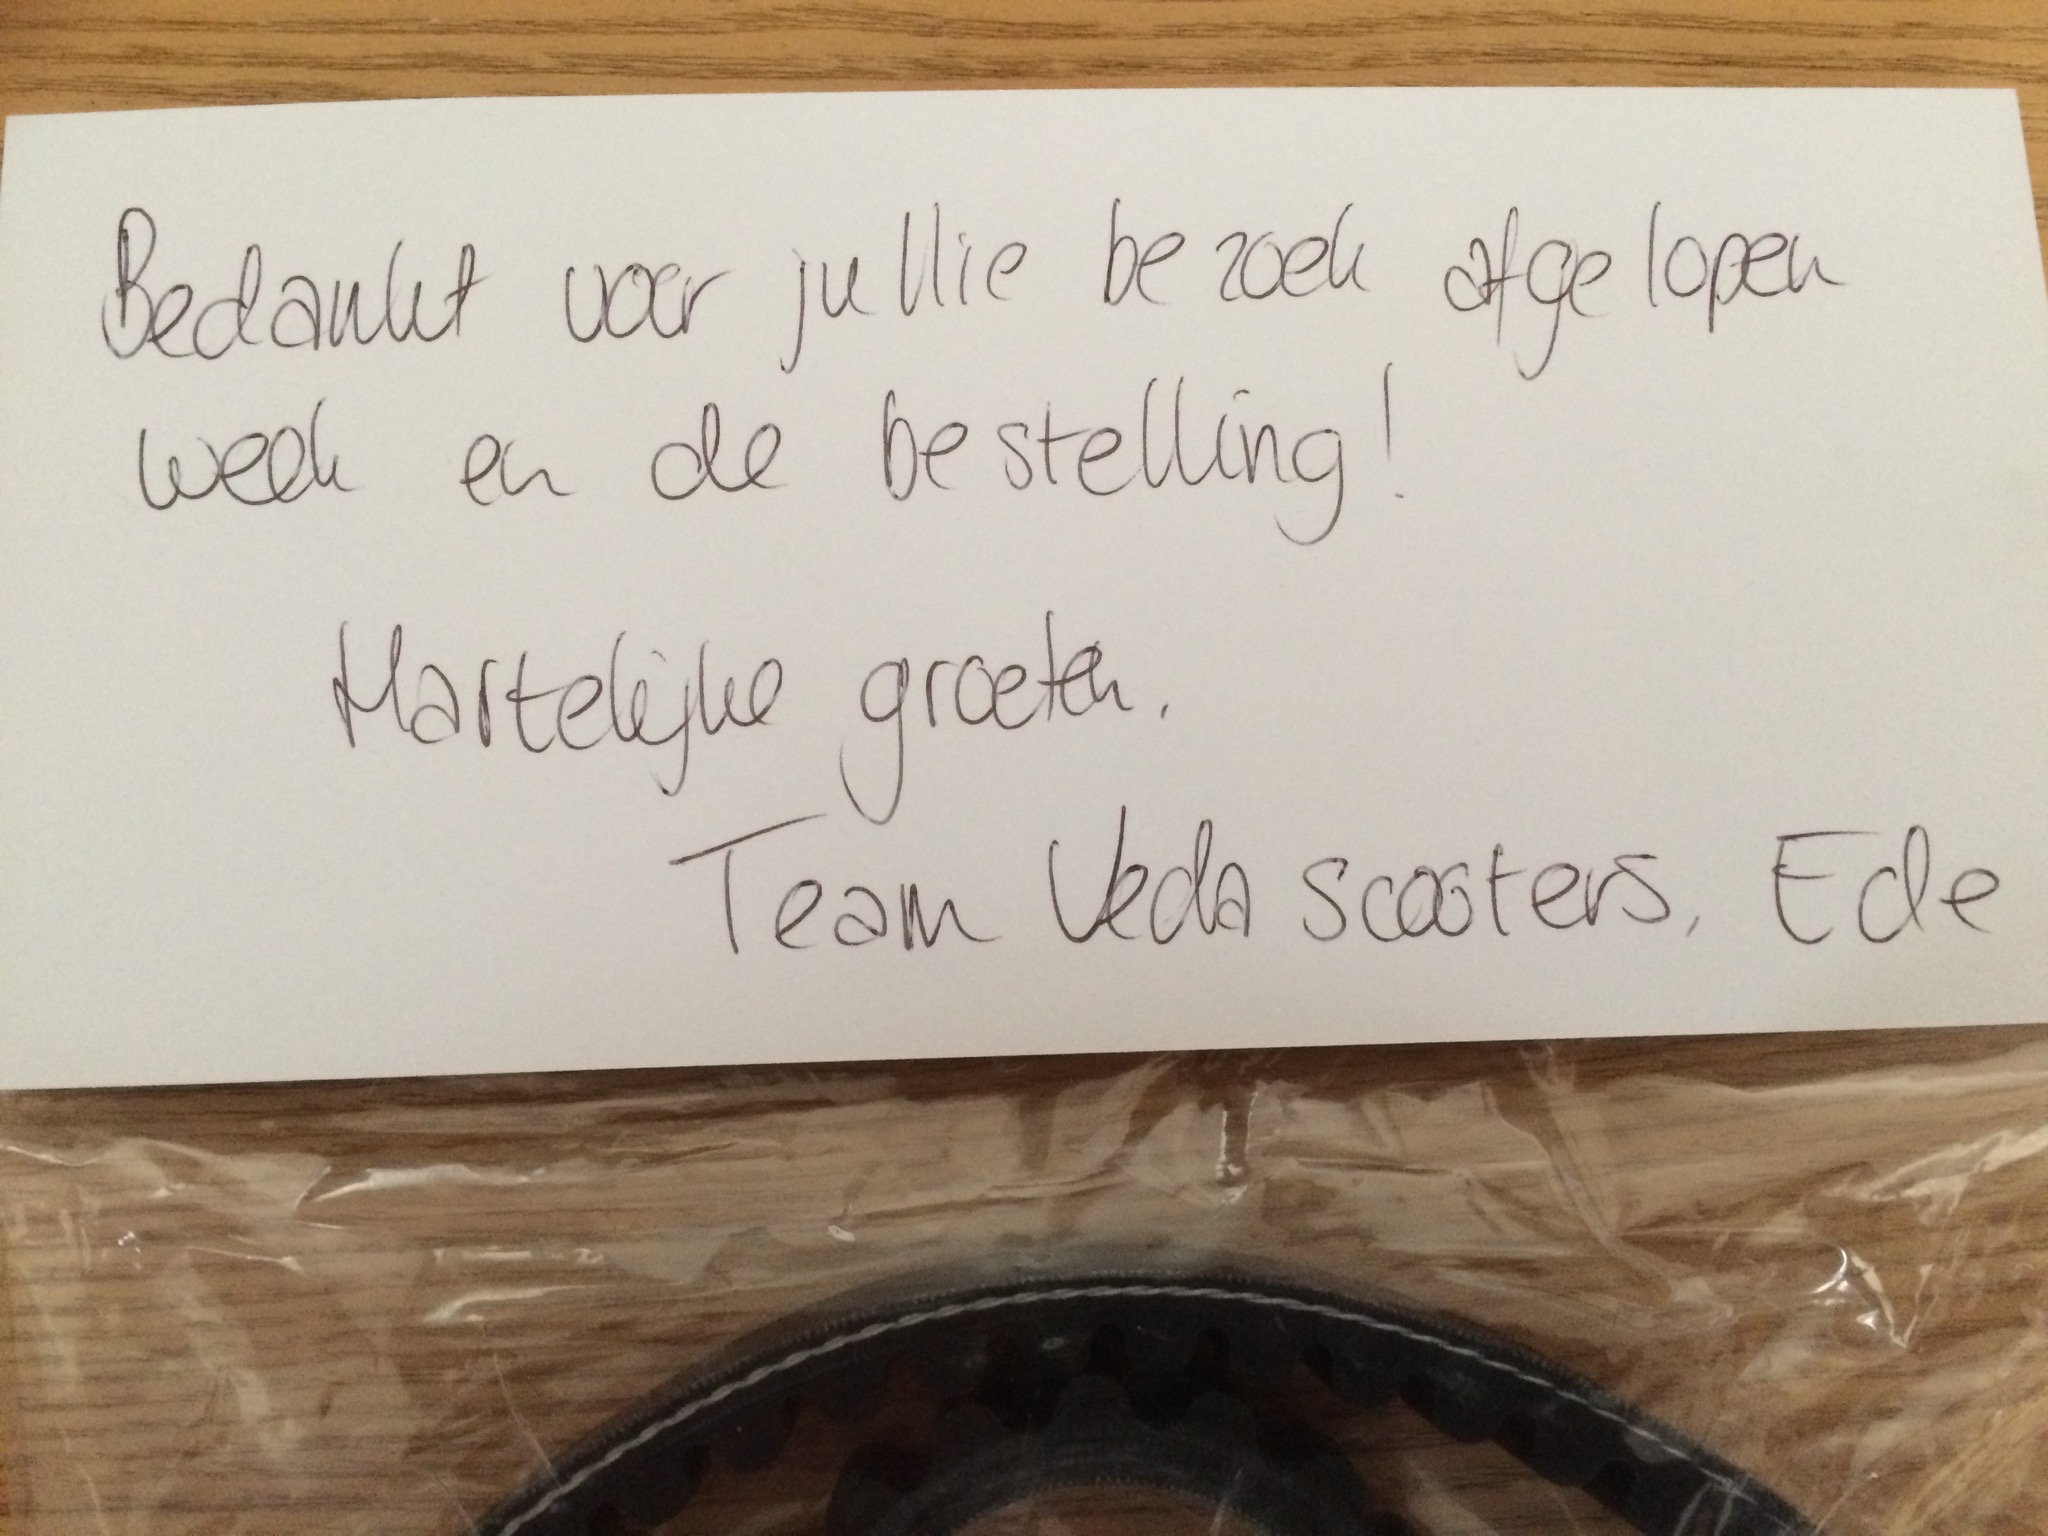 Bedankt voor jullie bezoek afgelopen
week en de bestelling!
Hartelijke groeten.
Team Veda scooters, Ede